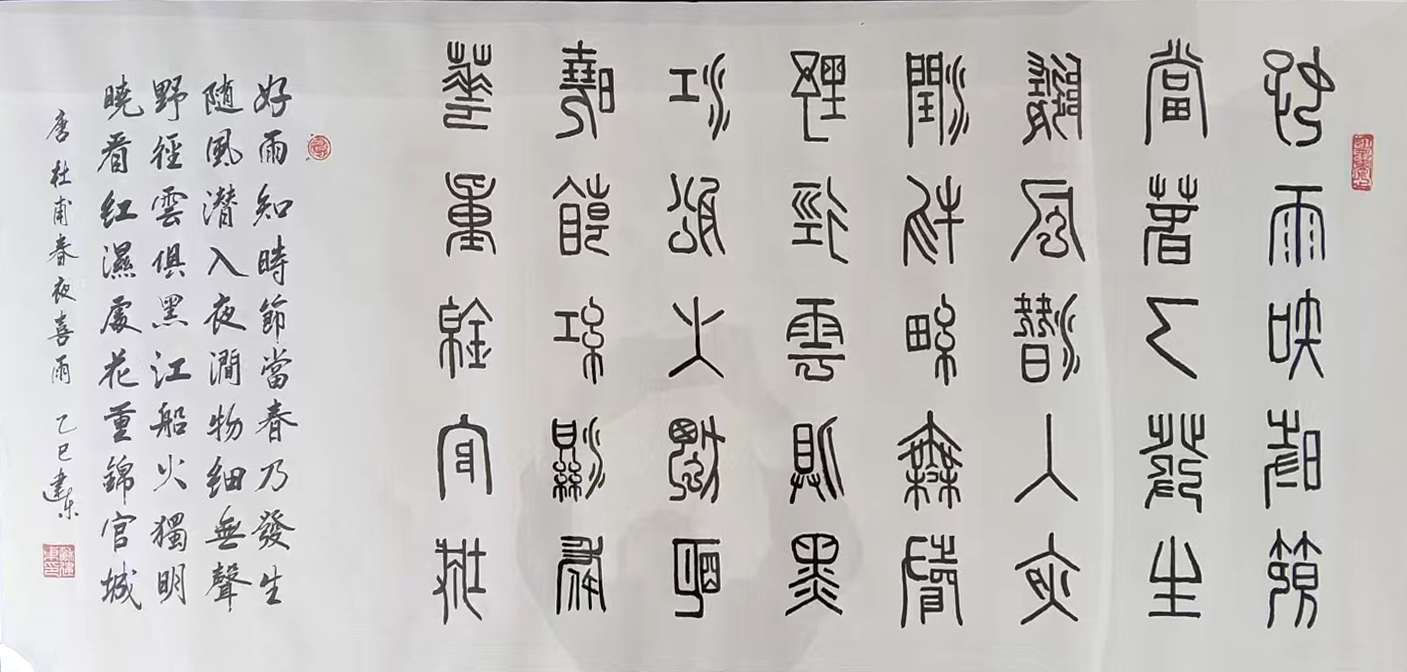 好雨知時節
當春乃發生
隨風潛入夜
潤物細無聲
野徑雲俱黑
江船火獨明
曉看紅濕處
花重錦官城
好雨知時節當春乃發生
随風潜入夜潤物細無聲
野徑雲俱黑江船火獨明
曉看红濕處花重錦官城
唐杜甫春夜喜雨 乙巳建东